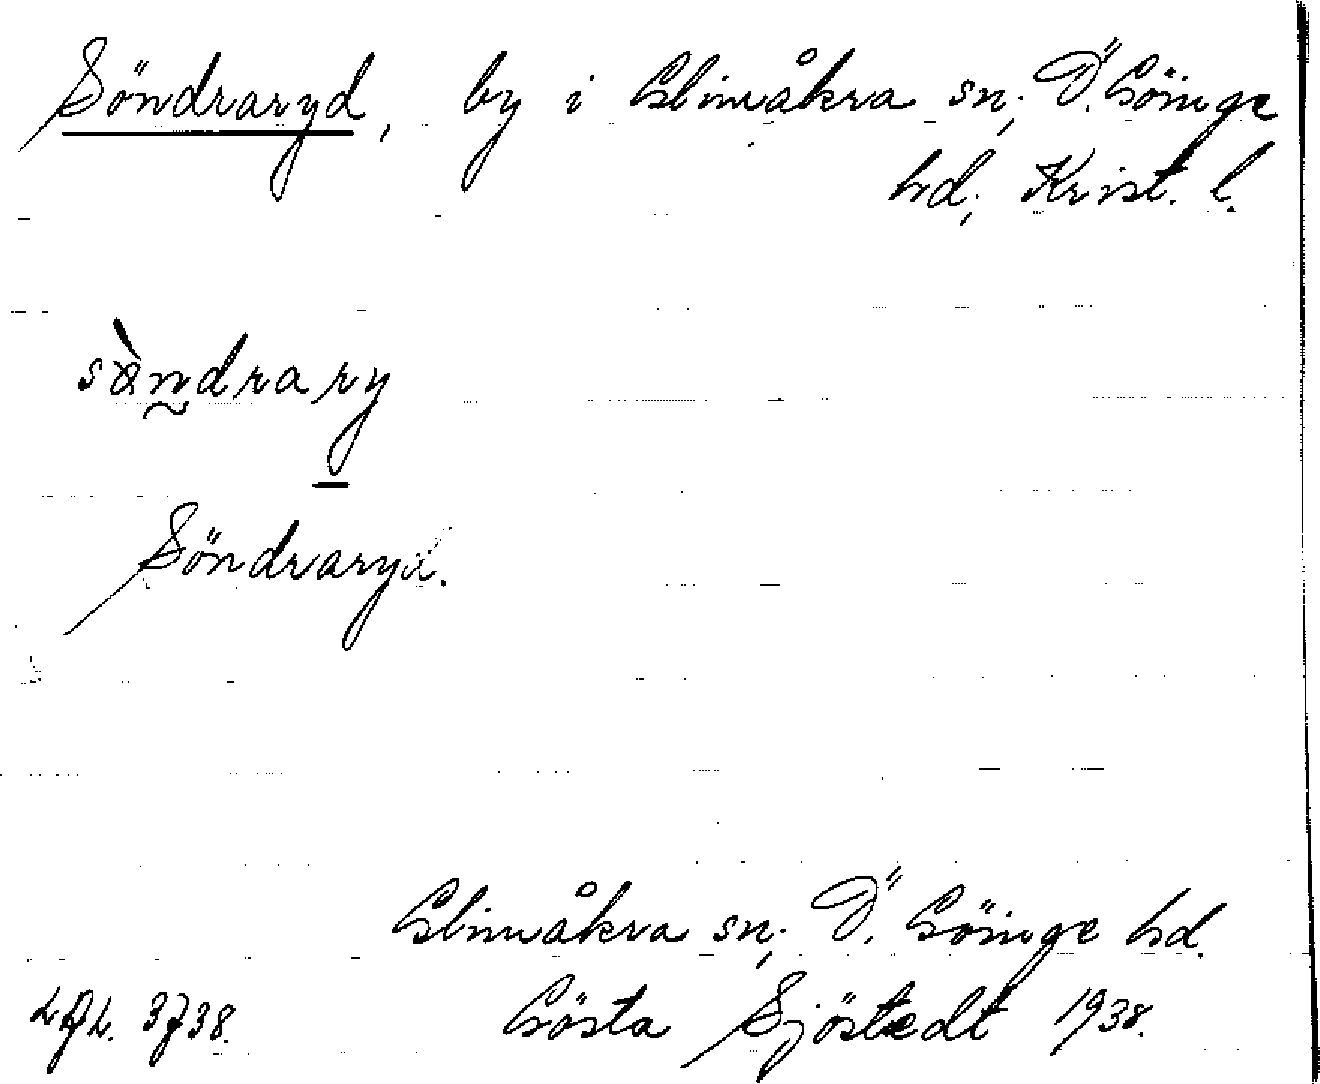 Söndraryd, by i Glimåkra sn; Ö. Göinge
hd; Krist. l.
sàndrary
Söndraryd.
Glimåkra sn; Ö. Göinge hd.
Gösta Sjöstedt 1938.